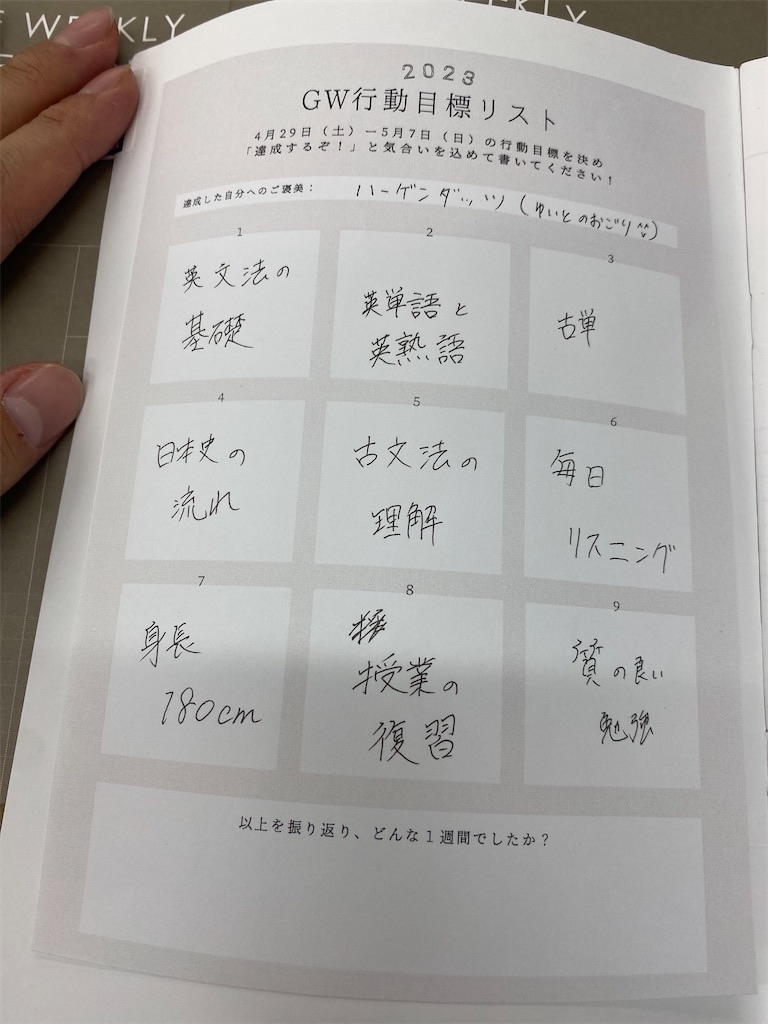 WEEKLY
2023
GW行動目標リスト
4月29日(土)ー5月7日(日)の行動目標を決め
「達成するぞ！」と気合いを込めて書いてください！
達成した自分へのご褒美： ハーゲンダッツ(ゆいとのおごり^^)
1
英文法の
基礎
2
英単語と
英熟語
3
古単
4
日本史の
流れ
5
古文法の
理解
6
毎日
リスニング
7
身長
180cm
8
授業の
復習
9
質の良い
勉強
以上を振り返り、どんな1週間でしたか？